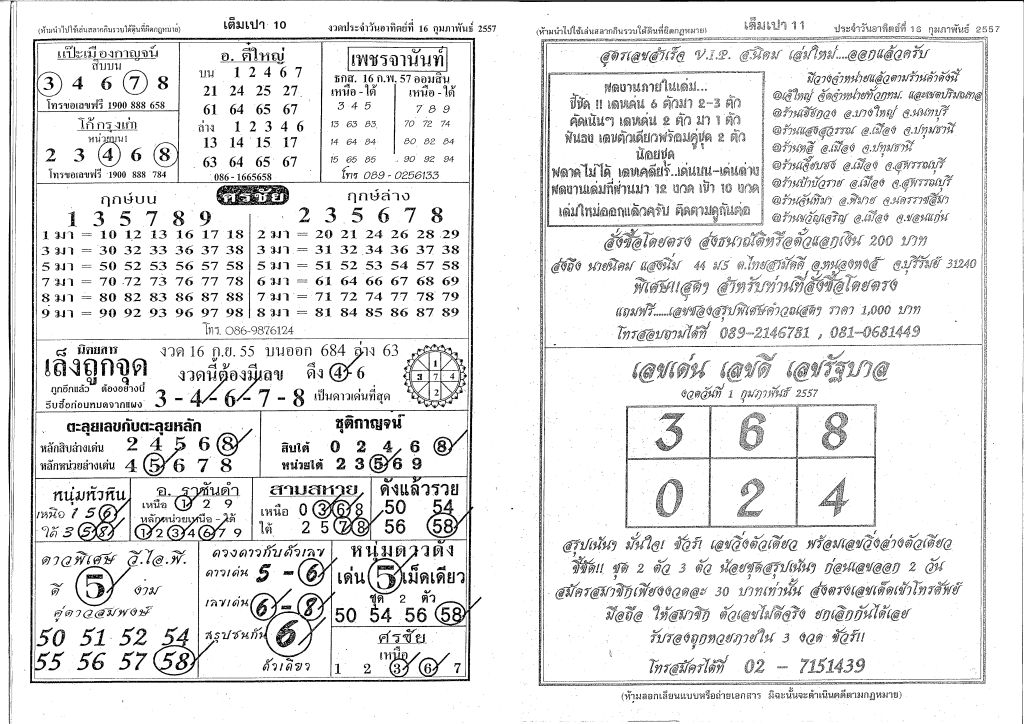 (ห้ามนำไปใช้เล่นสลากกินรวบได้ดินที่ผิดกฎหมาย)
เต็มเปา 10
งวดประจำวันอาทิตย์ที่ 16 กุมภาพันธ์ 2557
แป๊ะเมืองกาญจน์
สิบบน
3 4 6 7 8
โทรขอเลขฟรี 1900 888 658
โก้กรุงเก่า
หน่วยบน1
2 3 4 6 8
โทรขอเลขฟรี 1900 888 784
อ. ตี๋ใหญ่
บน 1 2 4 6 7
21 24 25 27
61 64 65 67
ล่าง 1 2 3 4 6
13 14 15 17
63 64 65 67
086-1665658
เพชรจานันท์
ธกส. 16 ก.พ. 57 ออมสิน
เหนือ - ใต้ เหนือ - ใต้
3 4 5 7 8 9
13 63 83 70 72 74
14 64 84 80 82 84
15 65 85 90 92 94
โทร 089-0256133
ศรชัย
ฤกษ์บน ฤกษ์ล่าง
1 3 5 7 8 9 2 3 5 6 7 8
1 มา = 10 12 13 16 17 18 2 มา = 20 21 24 26 28 29
3 มา = 30 31 34 36 37 38 3 มา = 30 32 34 36 37 38
5 มา = 50 52 53 56 57 58 5 มา = 51 52 53 54 57 58
7 มา = 70 72 73 76 77 78 6 มา = 61 64 66 67 68 69
8 มา = 80 82 83 86 87 88 7 มา = 71 72 74 77 78 79
9 มา = 90 92 93 96 97 98 8 มา = 81 82 84 86 87 89
โทร. 086-9876124
นิตยสาร
เล็งถูกจุด
ถูกอีกแล้ว ต้องอย่างนี้
รีบซื้อก่อนหมดจากแผง
งวด 16 ก.ย. 55 บนออก 684 ล่าง 63
งวดนี้ต้องมีเลข ดึง 4 - 6
3 - 4 - 6 - 7 - 8 เป็นดาวเด่นที่สุด
ตะลุยเลขกับตะลุยหลัก
หลักสิบล่างเด่น 2 4 5 6 8
หลักหน่วยล่างเด่น 4 5 6 7 8
ชุติกาญจน์
สิบใต้ 0 2 4 6 8
หน่วยใต้ 2 3 5 6 9
หนุ่มหัวหิน
เหนือ 1 5 6
ใต้ 3 5 8
อ. ราชันดำ
เหนือ 1 2 9
หลักหน่วยเหนือ - ใต้
1 2 3 4 6 7 9
สามสหาย
เหนือ 0 3 6 8
ใต้ 2 5 7 8
ดังแล้วรวย
50 54
56 58
ดาวพิเศษ วี.ไอ.พี.
ดี 5 งาม
คู่ดาวสมพงษ์
50 51 52 54
55 56 57 58
ดวงดาวกับตัวเลข
ดาวเด่น 5 - 6
เลขเด่น 6 - 8
สรุปชนกัน 6
ตัวเดียว
หนุ่มดาวดัง
เด่น 5 เม็ดเดียว
ชุด 2 ตัว
50 54 56 58
ศรชัย
เหนือ
1 2 3 6 7
(ห้ามนำไปใช้เล่นสลากกินรวบได้ดินที่ผิดกฎหมาย)
เต็มเปา 11
ประจำวันอาทิตย์ที่ 16 กุมภาพันธ์ 2557
สูตรเลขสำเร็จ V.I.P. อ.นิคม เล่มใหม่....ออกแล้วครับ
ผลงานภายในเล่ม...
ชี้ชัด !! เลขเด่น 6 ตัวมา 2-3 ตัว
คัดเน้นๆ เลขเด่น 2 ตัว มา 1 ตัว
ฟันธง เลขตัวเดียวพร้อมคู่ชุด 2 ตัว
น้อยชุด
พลาดไม่ได้ เลขเคลียร์..เด่นบน-เด่นล่าง
ผลงานเล่มที่ผ่านมา 12 งวด เข้า 10 งวด
เล่มใหม่ออกแล้วครับ ติดตามดูกันต่อ
มีวางจำหน่ายแล้วตามร้านค้าดังนี้
@เจ๊ใหญ่ จัดจำหน่ายทั่วกทม. และเขตปริมณฑล
@ร้านเฮียกวง อ.บางใหญ่ จ.นนทบุรี
@ร้านแสงสุวรรณ อ.เมือง จ.ปทุมธานี
@ร้านหลี อ.เมือง จ.ปทุมธานี
@ร้านเจี๊ยบชง อ.เมือง จ.สุพรรณบุรี
@ร้านป้าบัวราย อ.เมือง จ.สุพรรณบุรี
@ร้านจันทิมา อ.พิมาย จ.นครราชสีมา
@ร้านขวัญเจริญ อ.เมือง จ.ขอนแก่น
สั่งซื้อโดยตรง ส่งธนาณัติหรือตั๋วแลกเงิน 200 บาท
ส่งถึง นายนิคม แสงนิ่ม 44 ม.5 ต.ไทยสามัคคี อ.หนองหงส์ จ.บุรีรัมย์ 31240
พิเศษ!!สุดๆ สำหรับท่านที่สั่งซื้อโดยตรง
แถมฟรี.....เลขซองสรุปพิเศษคำวณเสดๆ ราคา 1,000 บาท
โทรสอบถามได้ที่ 089-2146781 , 081-0681449
เลขเด่น เลขดี เลขรัฐบาล
งวดวันที่ 1 กุมภาพันธ์ 2557
3 6 8
0 2 4
สรุปเน้นๆ มั่นใจ! ชัวร์! เลขวิ่งตัวเดียว พร้อมเลขวิ่งล่างตัวเดียว
ชี้ชัด!! ชุด 2 ตัว 3 ตัว น้อยชุดสรุปเน้นๆ ก่อนเลขออก 2 วัน
สมัครสมาชิกเพียงงวดละ 30 บาทเท่านั้น ส่งตรงเลขเด็ดเข้าโทรศัพย์
มือถือ ให้สมาชิก ตัวเลขไม่ดีจริง ยกเลิกกันได้เลย
รับรองถูกหวยภายใน 3 งวด ชัวร์!!
โทรสมัครได้ที่ 02 - 7151439
(ห้ามลอกเลียนแบบหรือถ่ายเอกสาร มิฉะนั้นจะดำเนินคดีตามกฎหมาย)